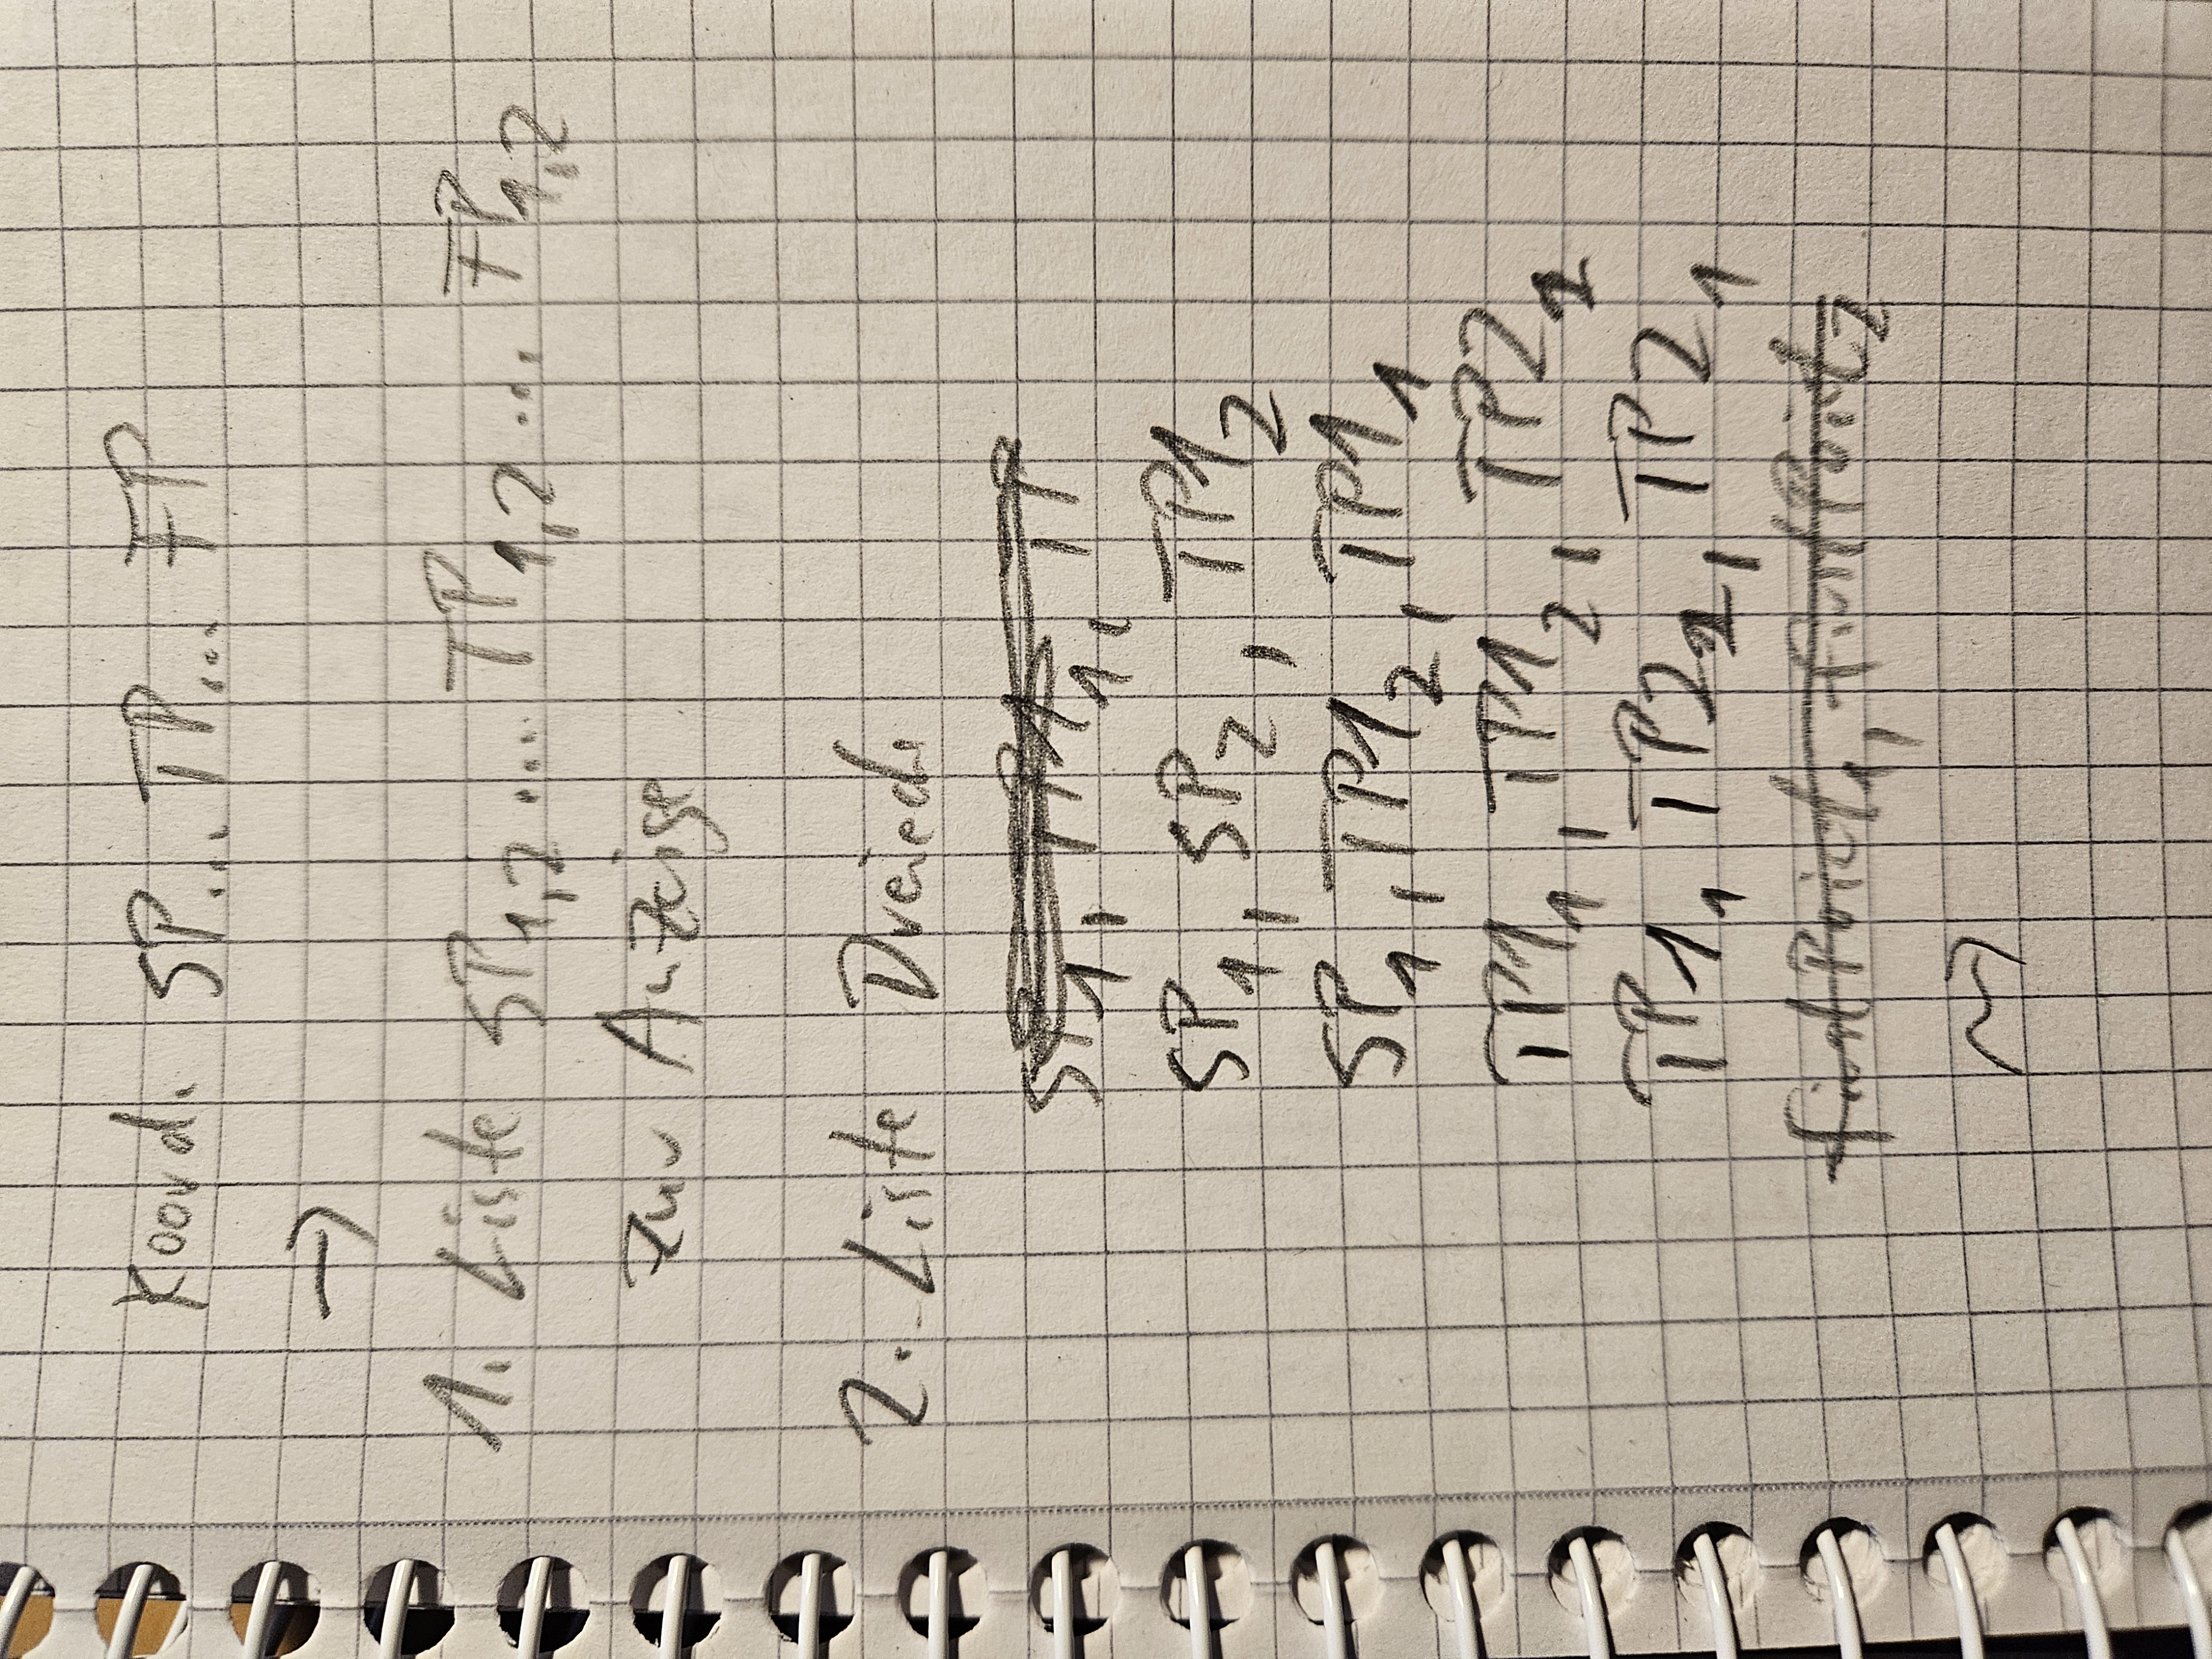 Koord. SP... TP... FP
→
1. Liste SP₁,₂ .... TP₁,₂ ... FP₁,₂
zur Anzeige
2. Liste Dreieck
SP₁, TP1₁, TP
SP₁, SP₂, TP1₂
SP₁, TP1₂, TP1₁
TP1₁, TP1₂, TP2₂
TP1₁, TP2₂, TP2₁